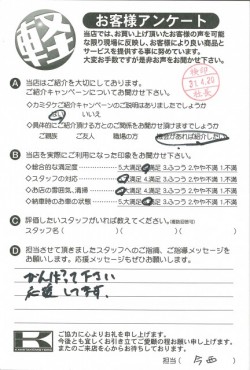 軽
お客様アンケート
当店では、お買い上げ頂いたお客様の声を可能
な限り現場に反映し、お客様により良い商品と
サービスを提供する事に努めています。
大変お手数ですが是非お声をお聞かせ下さい。
A 当店はご紹介を大切にしております。
ご紹介キャンペーンについてお聞かせ下さい。
31.4.20
社長
◇カミタケご紹介キャンペーンのご説明はありましたでしょうか
はい いいえ
◇具体的にご紹介頂ける方とのご関係をお聞かせ頂けますでしょうか
ご親族 ご友人 職場の方 機会があれば紹介したい
B 当店を実際にご利用になった印象をお聞かせ下さい。
◇総合的な満足度 5.大満足 4.満足 3.ふつう 2.やや不満 1.不満
◇スタッフの対応 5.大満足 4.満足 3.ふつう 2.やや不満 1.不満
◇お店の雰囲気、清掃 5.大満足 4.満足 3.ふつう 2.やや不満 1.不満
◇納車時のお車の状態 5.大満足 4.満足 3.ふつう 2.やや不満 1.不満
C 評価したいスタッフがいれば教えてください。(複数回答可)
スタッフ名( )( )( )
D 担当させて頂きましたスタッフへのご指摘、ご指導メッセージを
お願いします。応援メッセージもぜひお願いします。
がんばって下さい
応援してます。
K
ご協力に心よりお礼を申し上げます。
今後とも宜しくお引き立てご愛顧の程お願い申し上げます。
またのご来店を心からお待ちしております。
担当( 今西 )